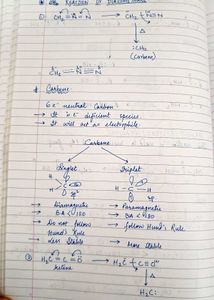 Reaction of Diazomethane
① CH₂=N=N → CH₂ N≡N
Δ
:CH₂
(Carbene)
CH₂ — N≡N
* Carbene
6e⁻ neutral carbon
→ It is e⁻ deficient species
→ It will act as electrophile
Carbene
Singlet Triplet
H C H H C H
sp²
→ Diamagnetic → Paramagnetic
→ BA < 180 → BA < 180
→ do not follow Hund's Rule → follow Hund's Rule
→ less stable → More stable
② H₂C=C=O → H₂C–C≡O
ketene Δ
H₂C: